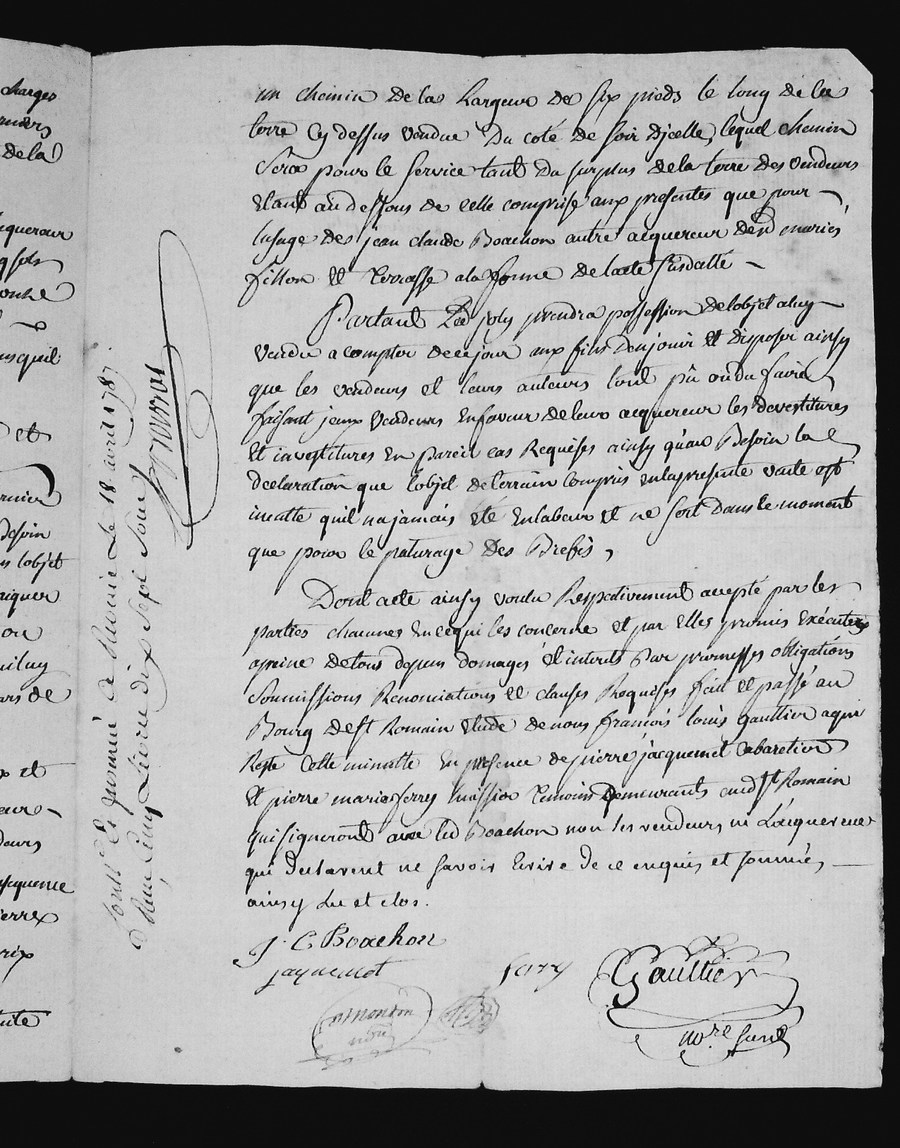 charges
de la
acquereur
jusquil
et
Besoin
lobjet
ou
ans de
et
Jacquemet
pierre
prix
un chemin de la Largeur de six pieds le long de la
terre cy dessus vendue Du coté de soir Djcelle, lequel chemin
Sera pour le service tant du surplus de la terre des vendeurs
Etant au dessous de celle comprise aux presentes que pour
lusage des jean claude Boachon autre acquereur des mariés
fillon et Terrasse a la forme de lacte susdatté
Partant Led joly prendra possession de lobjet aluy
vendu a compter de ce jour aux fins den jouir Et disposer ainsy
que les vendeurs et leurs auteurs lont pû ou du faire
faisant jceux vendeurs En faveur de leur acquereur les devestitures
Et investitures En pareil cas Requises ainsy quau Besoin la
declaration que lobjet de terrain compris en la presente vente est
inculte quil na jamais été En labeur et ne sert Dans le moment
que pour le paturage des Brebis,
Dont acte ainsy voulu Respectivement accepté par les
parties chacunes En ce qui les concerne et par Elles promis exécuter
apeine de tous depens domages et interets Par promesses obligations
Soumissions Renonciations et clauses Requises fait et passé au
Bourg de st Romain Etude de nous francois louis gaultier a qui
Reste Cette minutte En presence de pierre jacquemet Cabaretier
Et pierre marie ferry Temoins Demeurants aud st Romain
qui signeront avec led Boachon non les vendeurs ni Lacquereur
qui declarent ne savoir Ecrire de ce enquis et sommés
ainsy Lu et clos.
J. C Boachon
jaquemet
ferry
Gaultier
nore
Contllé Et jnsinué a Le 18 avril 1787
Reçu Cinq Livres dix Sept Sous